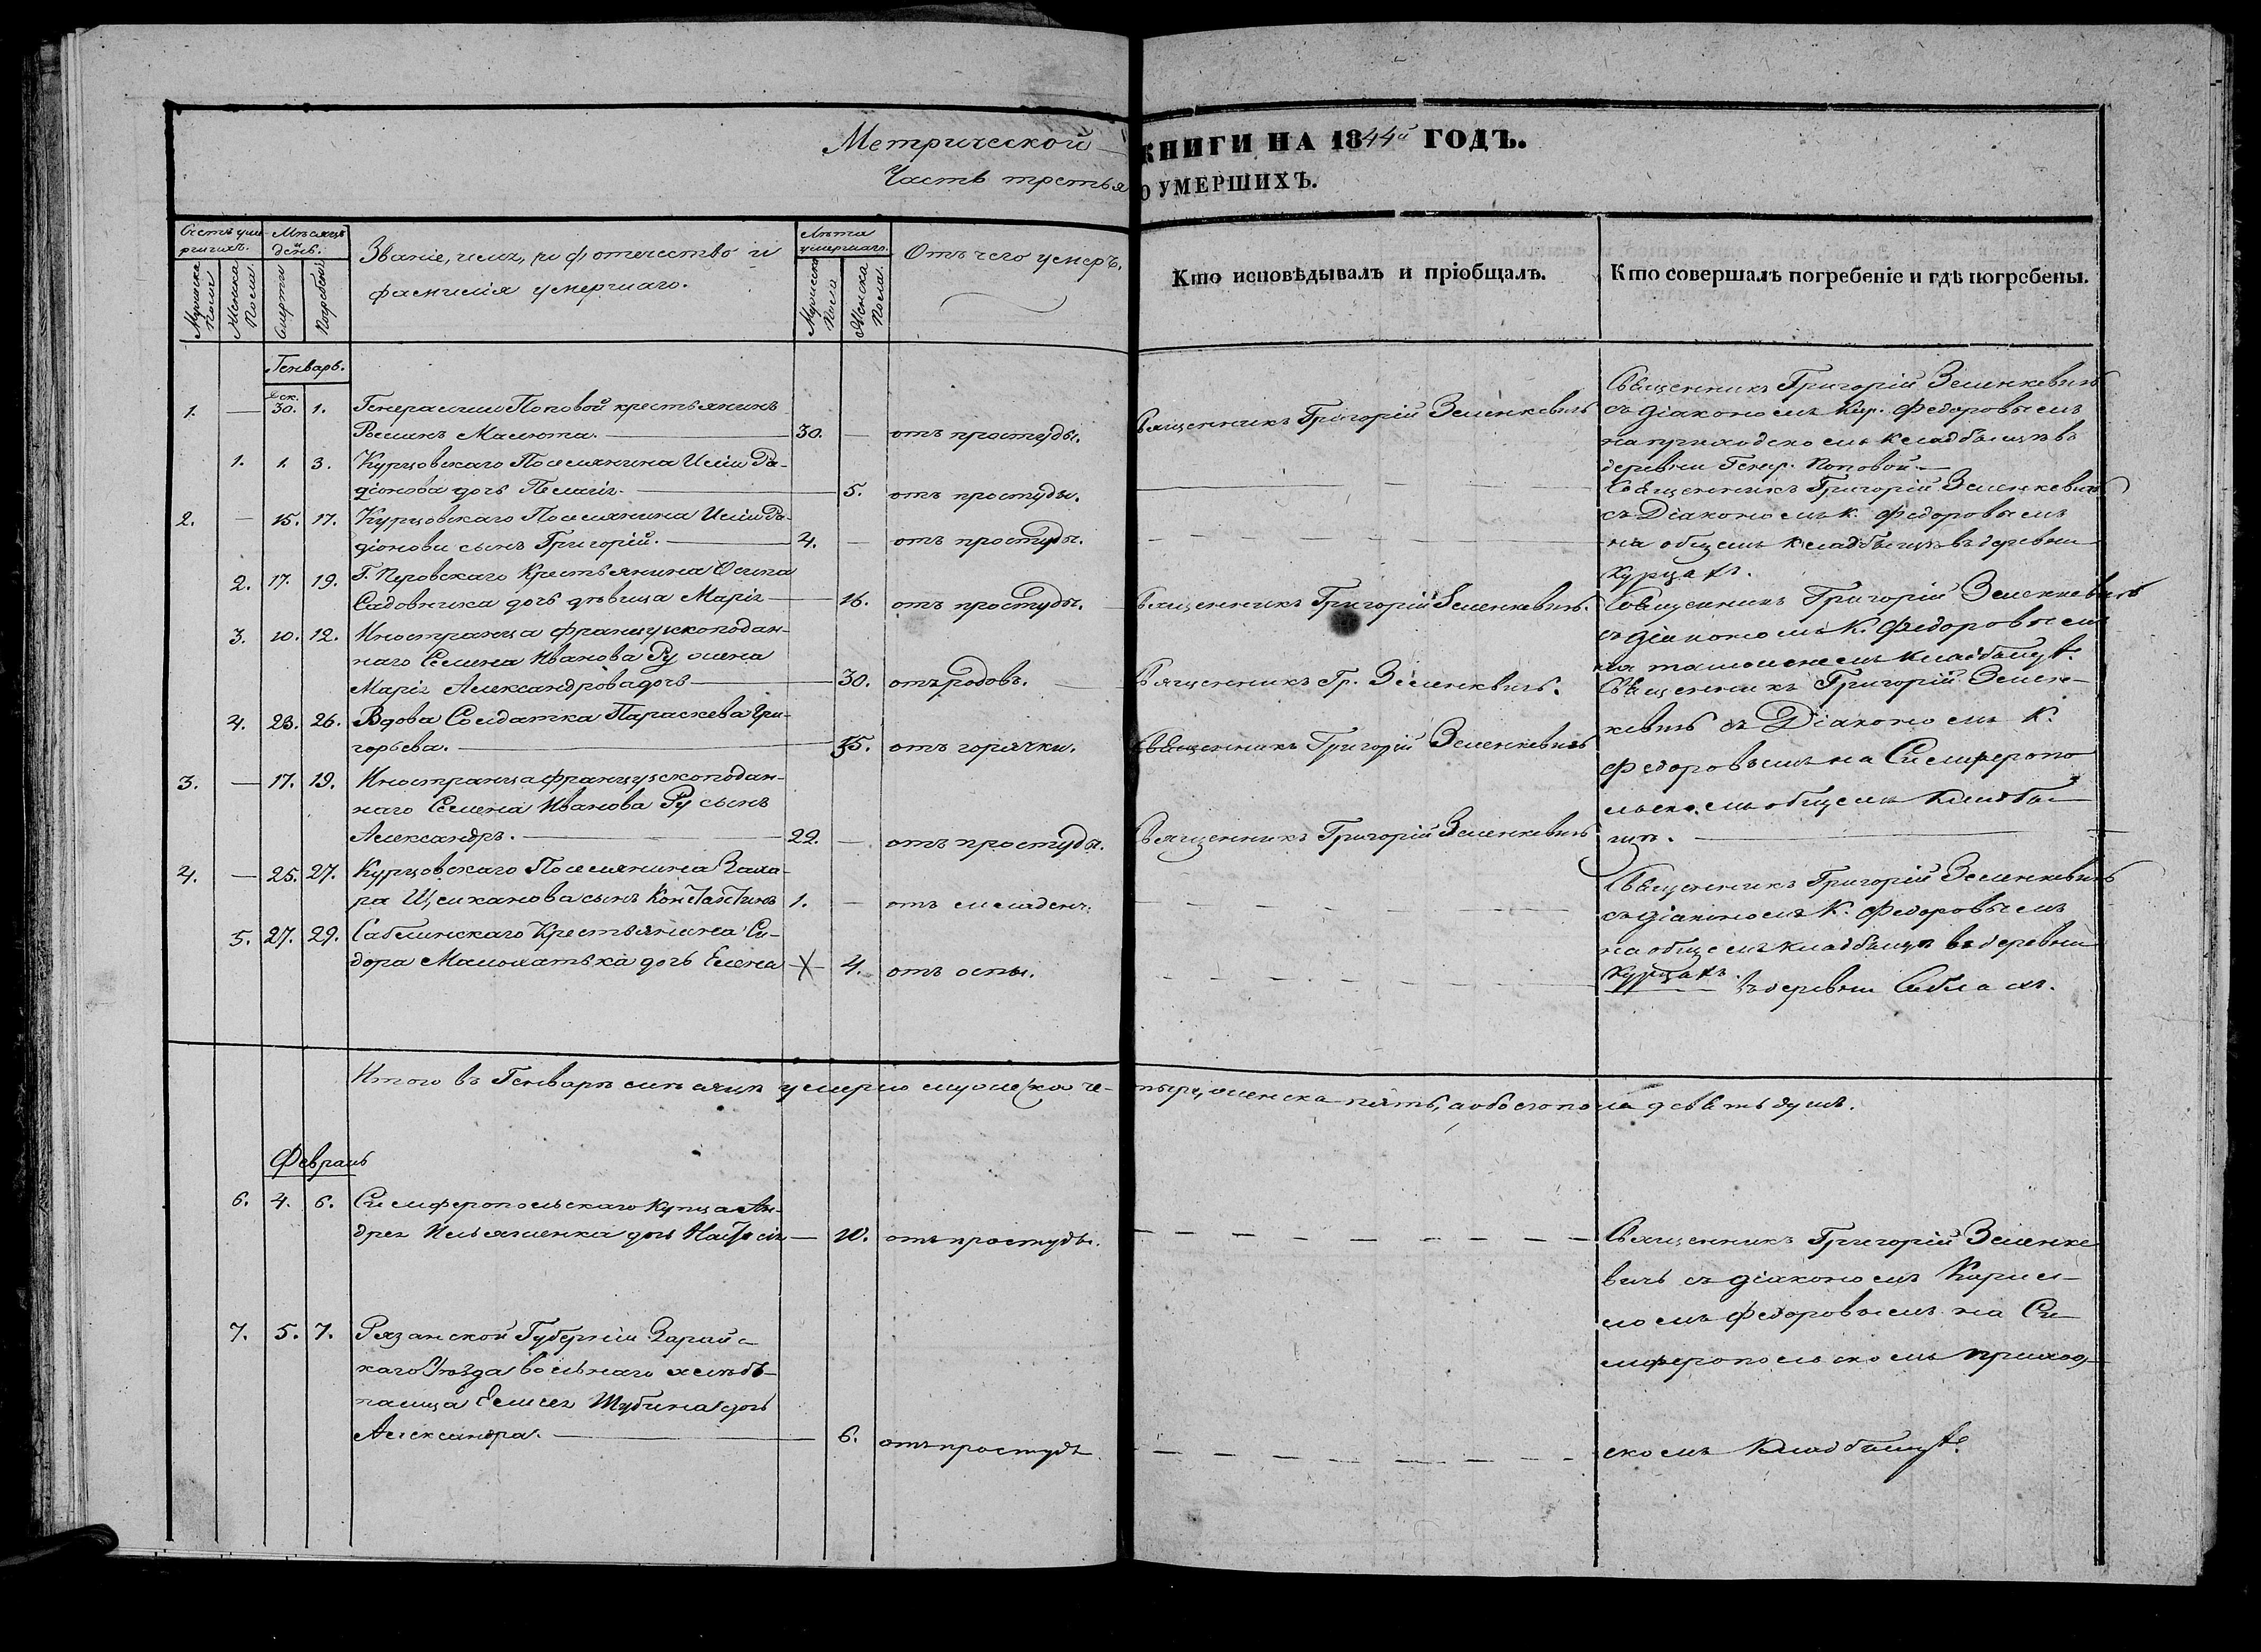 Метрической
КНИГИ НА 1844й ГОДЪ.
Часть третья
О УМЕРШИХЪ.
Счетъ умершихъ.
Мужеска Пола
Женска Пола
Мѣсяцъ и день.
Смерти
Погребенія
Званіе, имя, отечество и
фамилія умершаго.
Лѣта умершаго.
Мужеска Пола
Женска Пола
Отъ чего умеръ.
Кто исповѣдывалъ и пріобщалъ.
Кто совершалъ погребеніе и гдѣ погребены.
Генварь.
1. — Дек. 30. 1. Генеральши Поповой крестьянинъ
Романъ Малюта. — 30. — отъ простуды.
Священникъ Григорій Зеленкевичь
Священникъ Григорій Зеленкевичь
съ діакономъ Кир. Федоровымъ
на приходскомъ кладбищѣ въ
деревни Генер. Поповой —
1. 1. 3. Курцовскаго Поселянина Иліи Ра-
діонова дочь Пелагія. — 5. отъ простуды.
2. — 15. 17. Курцовскаго Поселянина Иліи Ра-
діонова сынъ Григорій. — 4. — отъ простуды.
Священникъ Григорій Зеленкевичь
съ Діакономъ К. Федоровымъ
на общемъ кладбищѣ въ деревни
Курцахъ.
2. 17. 19. Г. Перовскаго Крестьянина Осипа
Садовника дочь дѣвица Марія — 16. отъ простуды.
Священникъ Григорій Зеленкевичь.
Священникъ Григорій Зеленкевичь
съ діакономъ К. Федоровымъ
на тамошнемъ кладбищѣ.
3. 10. 12. Иностранца французкоподан-
наго Семена Иванова Ру жена
Марія Александрова дочь — 30. отъ родовъ.
Священникъ Гр. Зеленквичь.
Священникъ Григорій Зелен-
кевичь съ Діакономъ К.
Федоровымъ на Симферопо
льскомъ общемъ кладби-
щѣ.
4. 23. 26. Вдова Солдатка Параскева Гри-
горьева. — 55. отъ горячки.
Священникъ Григорій Зеленкевичь
3. — 17. 19. Иностранца французскоподан-
наго Семена Иванова Ру сынъ
Александръ. — 22. — отъ простуды.
Священникъ Григорій Зеленкевичь
4. — 25. 27. Курцовскаго Поселянина Заха-
ра Щиканова сынъ Константинъ 1. — отъ младенч.
Священникъ Григорій Зеленкевичь
съ діакономъ К. Федоровымъ
на общемъ кладбищѣ въ деревни
Курцахъ.
5. 27. 29. Саблинскаго Крестьянина Си-
дора Малохатька дочь Елена 4. отъ оспы.
въ деревни Саблахъ.
Итого въ Генварѣ мѣсяцѣ умерло мужеска че-
тыре, женска пять, а обоего пола девять душъ.
Февраль
6. 4. 6. Симферопольскаго Купца Ан-
дрея Ильяшенка дочь — 10. отъ простуды.
Священникъ Григорій Зеленке
вичь съ діакономъ Кирил-
ломъ Федоровымъ на Си-
мферопольскомъ приход-
скомъ кладбищѣ.
7. 5. 7. Рязанской Губерніи Зарайс-
каго Уѣзда вольнаго хлѣбъ-
пашца Елисея Шубина дочь
Александра. — 6. отъ простуды